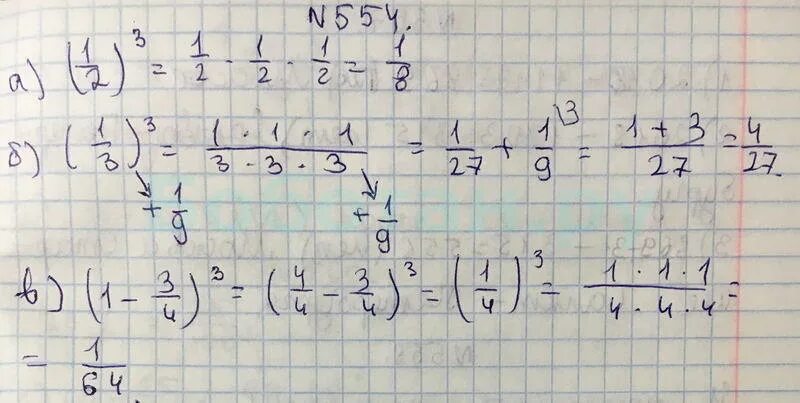 N554.
а) (1/2)³ = 1/2 · 1/2 · 1/2 = 1/8
б) (1/3)³ = 1·1·1/3·3·3 = 1/27 + 1/9\3 = 1+3/27 = 4/27.
+1/9 +1/9
в) (1 - 3/4)³ = (4/4 - 3/4)³ = (1/4)³ = 1·1·1/4·4·4 =
= 1/64.